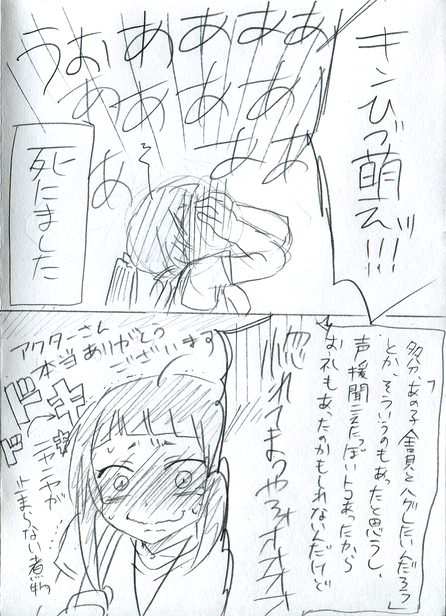 キンひづ萌え゛!!!
うおあああああ
ああああ
ああ
あ
死にました
「多分あの子全員とハグしたいんだろう」
とか、そういうのもあったと思うし、
声援聞こえたっぽいトコあったから
お礼もあったのかもしれないんだけど
惚れてまうやろオオオオ
アクターさん
本当ありがとう
ございます
ドキドキ
ニヤニヤが
止まらない煮物